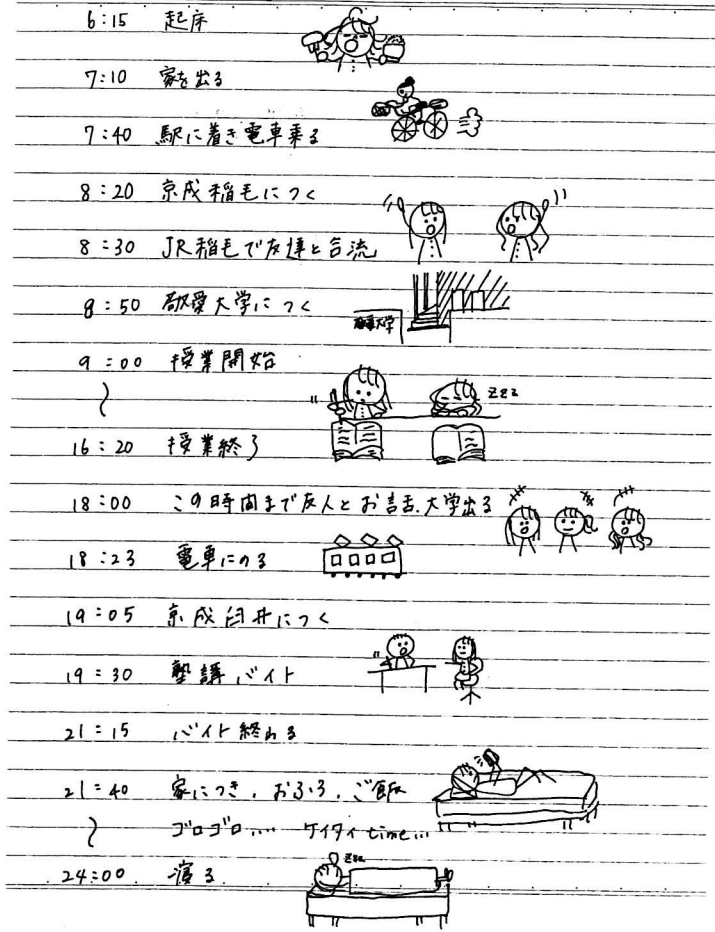 6:15 起床
7:10 家を出る
7:40 駅に着き電車乗る
8:20 京成稲毛につく
8:30 JR稲毛で友達と合流
8:50 敬愛大学につく
敬愛大学
9:00 授業開始
〜
zzz
16:20 授業終了
18:00 この時間まで友人とお話、大学出る
18:23 電車にのる
19:05 京成臼井につく
19:30 塾講バイト
21:15 バイト終わる
21:40 家につき、おふろ、ご飯
〜 ゴロゴロ.... ケイタイtime...
24:00 寝る
zzz